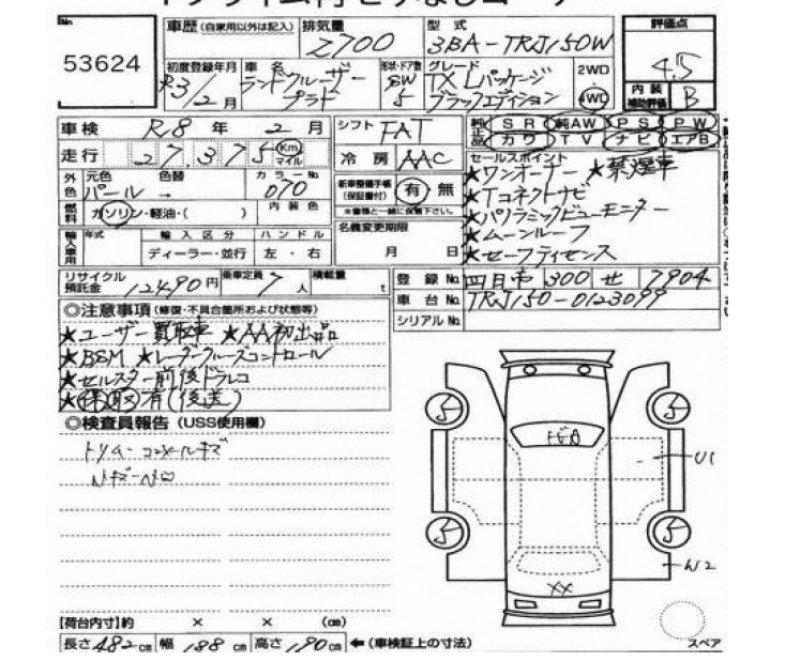 No. 53624
車歴（自家用以外は記入） 排気量 2700 型式 3BA-TRJ150W 評価点 4.5
初度登録年月 R3/2月 車名 ランドクルーザープラド 形状・ドア数 SW 5 グレード TX Lパッケージ ブラックエディション 2WD 4WD 内装補助評価 B
車検 R8年 2月 シフト FAT 純正品 SR 純AW PS PW
カワ TV ナビ エアB
走行 27,375 Km マイル 冷房 AAC セールスポイント
外色 元色 パール 色替 → カラーNo. 070 新車整備手帳（保証書付） 有 無 ★ワンオーナー ★禁煙車
★Tコネクトナビ
燃料 ガソリン・軽油・（ ） 内装色 ※書類と一緒に保管下さい。 ★パノラミックビューモニター
輸入車用 年式 輸入区分 ディーラー・並行 ハンドル 左・右 名義変更期限 月 日 ★ムーンルーフ
★セーフティセンス
リサイクル預託金 12490円 乗車定員 7人 積載量 t 登録No. 300 せ 7904
車台No. TRJ150-0123099
シリアルNo.
◎注意事項（修復・不具合箇所および状態等）
★ユーザー買取車 ★AA初出品
★BSM ★レーダークルーズコントロール
★セルスター前後ドラレコ
★保取有（後送）
◎検査員報告（USS使用欄）
トリム・コスレキズ
5 5
U1
5 5
W2
XX
【荷台内寸】約 × × （cm）
長さ 482cm 幅 188cm 高さ 190cm ←（車検証上の寸法） スペア